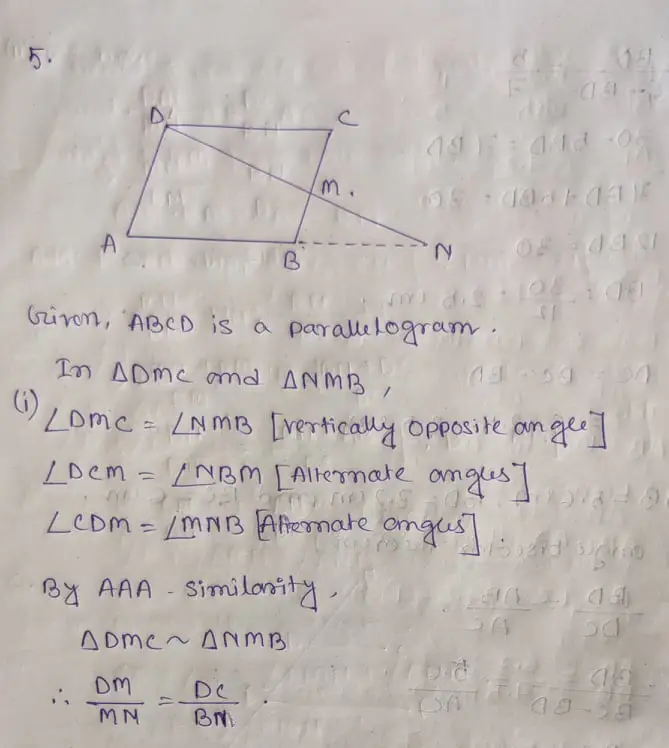 5.
D
C
M.
A
B
N
Given, ABCD is a parallelogram.
In ΔDMC and ΔNMB,
(i) ∠DMC = ∠NMB [vertically opposite angle]
∠DCM = ∠NBM [Alternate angles]
∠CDM = ∠MNB [Alternate angles].
By AAA - similarity,
ΔDMC ~ ΔNMB
∴ DM/MN = DC/BN.